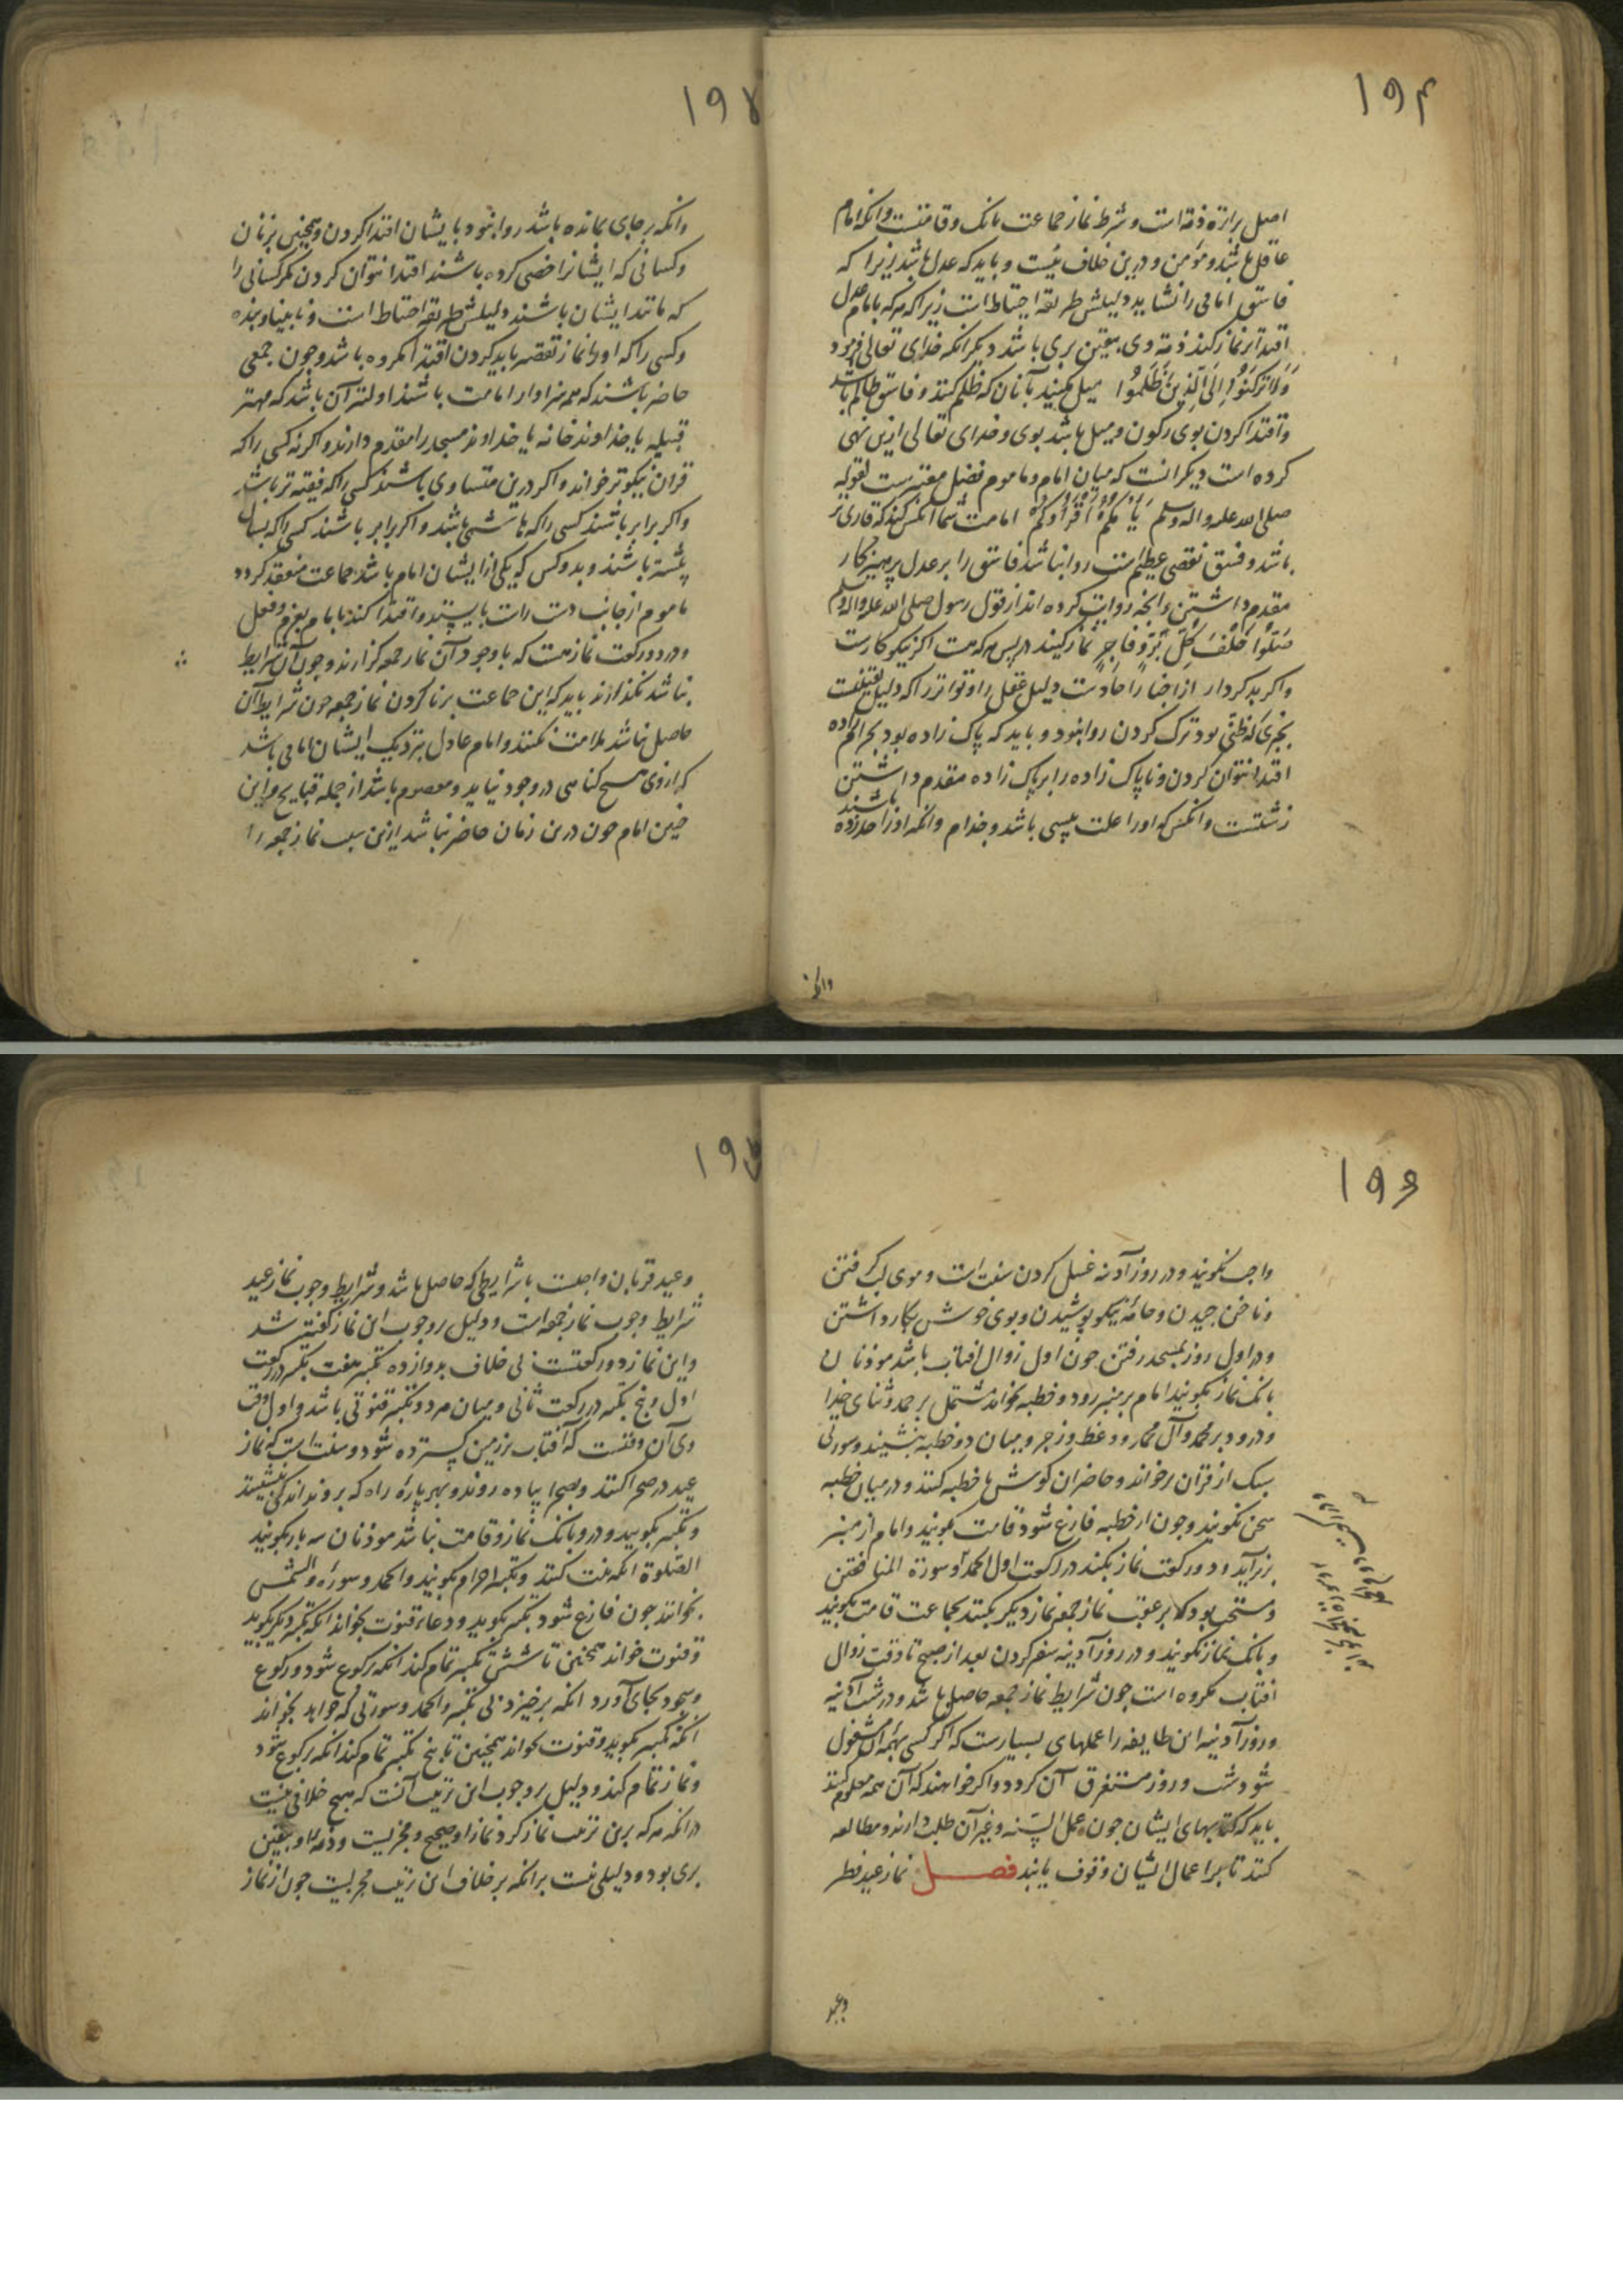 ۱۹۴
اصل براءة ذمة است و شرط نماز جماعت بانک و قامتست و انکه امام
عاقل باشد و مؤمن و درین خلاف نیست و باید که عدل باشد زیرا که
فاسق امامی را نشاید دلیلش طریقه احتیاط است زیرا که هرکه بامام عدل
اقتدا بر نماز کند ذمه وی بیقین بری باشد دیکر انکه خدای تعالی فرمود
وَلَا تَرْكَنُوا إِلَى الَّذِينَ ظَلَمُوا میل مکنید بآنان که ظلم کنند و فاسق ظالم باشد
و اقتدا کردن بوی رکون و میل باشد بوی و خدای تعالی ازین نهی
کرده است دیکر انست که میان امام و ماموم فضل معتبرست لقوله
صلی الله علیه واله وسلم یَؤمّکم اَقرَأُکُم امامت شما آنکس کند که قاری تر
باشد و فسق نقصی عظیم است روا نباشد فاسق را بر عدل پرهیزکار
مقدم داشتن و انچه روایت کرده اند از قول رسول صلی الله علیه واله وسلم
صَلُّوا خَلْفَ كُلِّ بَرٍّ وَفَاجِرٍ نماز کنید در پس هرکه هست اکر نیکوکارست
و اکر بدکردار از اخبار آحادست دلیل عقل را و تواتر را که دلیل یقینست
بخبری که ظنی بود ترک کردن روا نبود و باید که پاک زاده بود بحرام زاده
اقتدا نتوان کردن و ناپاک زاده را بر پاک زاده مقدم داشتن
زشتست و انکس که او را علت پیسی باشد و جذام و انکه او را حد زده باشند
وانکه
۱۹۵
وانکه بر جای بمانده باشد روا نبود بایشان اقتدا کردن و همچنین بزنان
و کسانی که ایشانرا خصی کرده باشند اقتدا نتوان کردن مکر کسانی را
که مانند ایشان باشند و دلیلش طریقه احتیاط است و نابینا و بنده
و کسی را که او را نماز تقصیر باید کردن اقتدا مکروه باشد و چون جمعی
حاضر باشند که همه سزاوار امامت باشند اولیتر آن باشد که مهتر
قبیله یا خداوند خانه یا خداوند مسجد را مقدم دارند و اکرنه کسی را که
قران نیکوتر خواند و اکر درین متساوی باشند کسی را که فقیه تر باشد
و اکر برابر باشند کسی را که هاشمی باشد و اکر برابر باشند کسی را که بسال
باشند و بدو کس که یکی از ایشان امام باشد جماعت منعقد کردد
ماموم از جانب دست راست بایستد و اقتدا کند بامام بعزم و فعل
و در دو رکعت نماز هست که با وجود آن نماز جمعه کزارند و چون آن شرایط
نباشد نکذارند باید که این جماعت برنا کردن نماز جمعه چون شرایط آن
حاصل نباشد ملامت نکنند و امام عادل بنزدیک ایشان امامی باشد
که از وی هیچ کناهی در وجود نیاید و معصوم باشد از جمله قبایح و این
چنین امام چون درین زمان حاضر نباشد ازین سبب نماز جمعه را
۱۹۶
واجب نکویند و در روز آدینه غسل کردن سنت است و موی لب کرفتن
و ناخن چیدن و جامه نیکو پوشیدن و بوی خوش بکار داشتن
و در اول روز بمسجد رفتن چون اول زوال افتاب باشد موذنان
بانک نماز بکویند امام بر منبر رود و خطبه بخواند مشتمل بر حمد و ثنای خدا
و درود بر محمد و آل محمد و وعظ و زجر و میان دو خطبه بنشیند و سورتی
سبک از قران برخواند و حاضران کوش با خطبه کنند و در میان خطبه
سخن نکویند و چون از خطبه فارغ شود قامت بکویند و امام از منبر
بزیر آید و دو رکعت نماز بکند در رکعت اول الحمد و سورة المنافقین
و مستحب بود که بر عقب نماز جمعه نماز دیکر بکنند بجماعت قامت بکویند
و بانک نماز نکویند و در روز آدینه سفر کردن بعد از صبح تا وقت زوال
افتاب مکروه است چون شرایط نماز جمعه حاصل باشد و در شب آدینه
و روز آدینه این طایفه را عملهای بسیارست که اکر کسی بهمه آن مشغول
شود شب و روز مستغرق آن کردد و اکر خواهند که آن همه معلوم کنند
باید که کتابهای ایشان چون عمل السنه و غیر آن طلب دارند و مطالعه
کنند تا بر اعمال ایشان وقوف یابند فصل نماز عید فطر
وعید
۱۹۷
و عید قربان واجبست با شرایطی که حاصل باشد و شرایط وجوب نماز عید
شرایط وجوب نماز جمعه است و دلیل بر وجوب این نماز کفته شد
و این نماز دو رکعتست بی خلاف بدوازده تکبیر هفت تکبیر در رکعت
اول و پنج تکبیر در رکعت ثانی و میان هر دو تکبیر قنوتی باشد و اول وقت
وی آن وقتست که آفتاب بر زمین کسترده شود و سنت است که نماز
عید در صحرا کنند و بصحرا پیاده روند و بهر پارهٔ راه که بروند اندکی بنشینند
و تکبیر بکویند و درو بانک نماز و قامت نباشد موذنان سه بار بکویند
الصلوة انکه نیت کنند و تکبیر احرام بکویند و الحمد و سوره والشمس
بخوانند چون فارغ شود تکبیر بکوید و دعاء قنوت بخواند انکه تکبیر دیکر بکوید
و قنوت خواند همچنین تا شش تکبیر تمام کند انکه رکوع شود و رکوع
و سجود بجای آورد انکه برخیزد بی تکبیر و الحمد و سورتی که خواهد بخواند
انکه تکبیر بکوید و قنوت بخواند همچنین تا پنج تکبیر تمام کند انکه رکوع شود
و نماز تمام کند و دلیل بر وجوب این ترتیب آنست که هیچ خلافی نیست
در انکه هرکه برین ترتیب نماز کرد نماز او صحیح و مجزیست و ذمه او بیقین
بری بود و دلیلی نیست بر انکه بر خلاف این ترتیب مجزیست چون از نماز